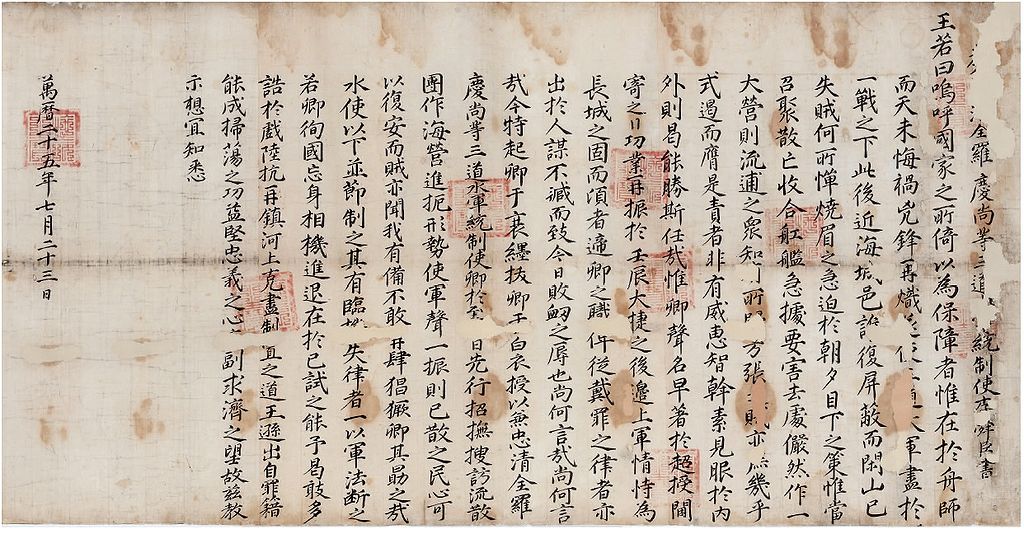 全羅慶尚等三道 統制使李舜臣書
王若曰嗚呼國家之所倚以為保障者惟在於舟師
而天未悔禍兇鋒再熾 軍盡於
一戰之下此後近海城邑誰復屏蔽而閑山已
失賊何所憚燒眉之急迫於朝夕目下之策惟當
召聚散亡收合舡艦急據要害去處儼然作一
大營則流逋之衆知 所 方張 賊亦 幾乎
式遏而膺是責者非有威惠智幹素見服於內
外則曷能勝斯任哉惟卿聲名早著於超授閫
寄之日功業再振於壬辰大捷之後邊上軍情恃為
長城之固而頃者遞卿之職 從戴罪之律者亦
出於人謀不臧而致今日敗衂之辱也尚何言哉尚何言
哉今特起卿于衰絰拔卿于白衣授以兼忠清全羅
慶尚等三道水軍統制使卿於 日先行招撫搜訪流散
團作海營進扼形勢使軍聲一振則已散之民心可
以復安而賊亦聞我有備不敢再肆猖獗卿其勗之哉
水使以下並節制之其有臨 失律者一以軍法斷之
若卿徇國忘身相機進退在於已試之能予曷敢多
誥於戲陸抗再鎮河上克盡制 之道王遜出自罪籍
能成掃蕩之功益堅忠義之心 副求濟之望故茲教
示想宜知悉
萬曆二十五年七月二十三日